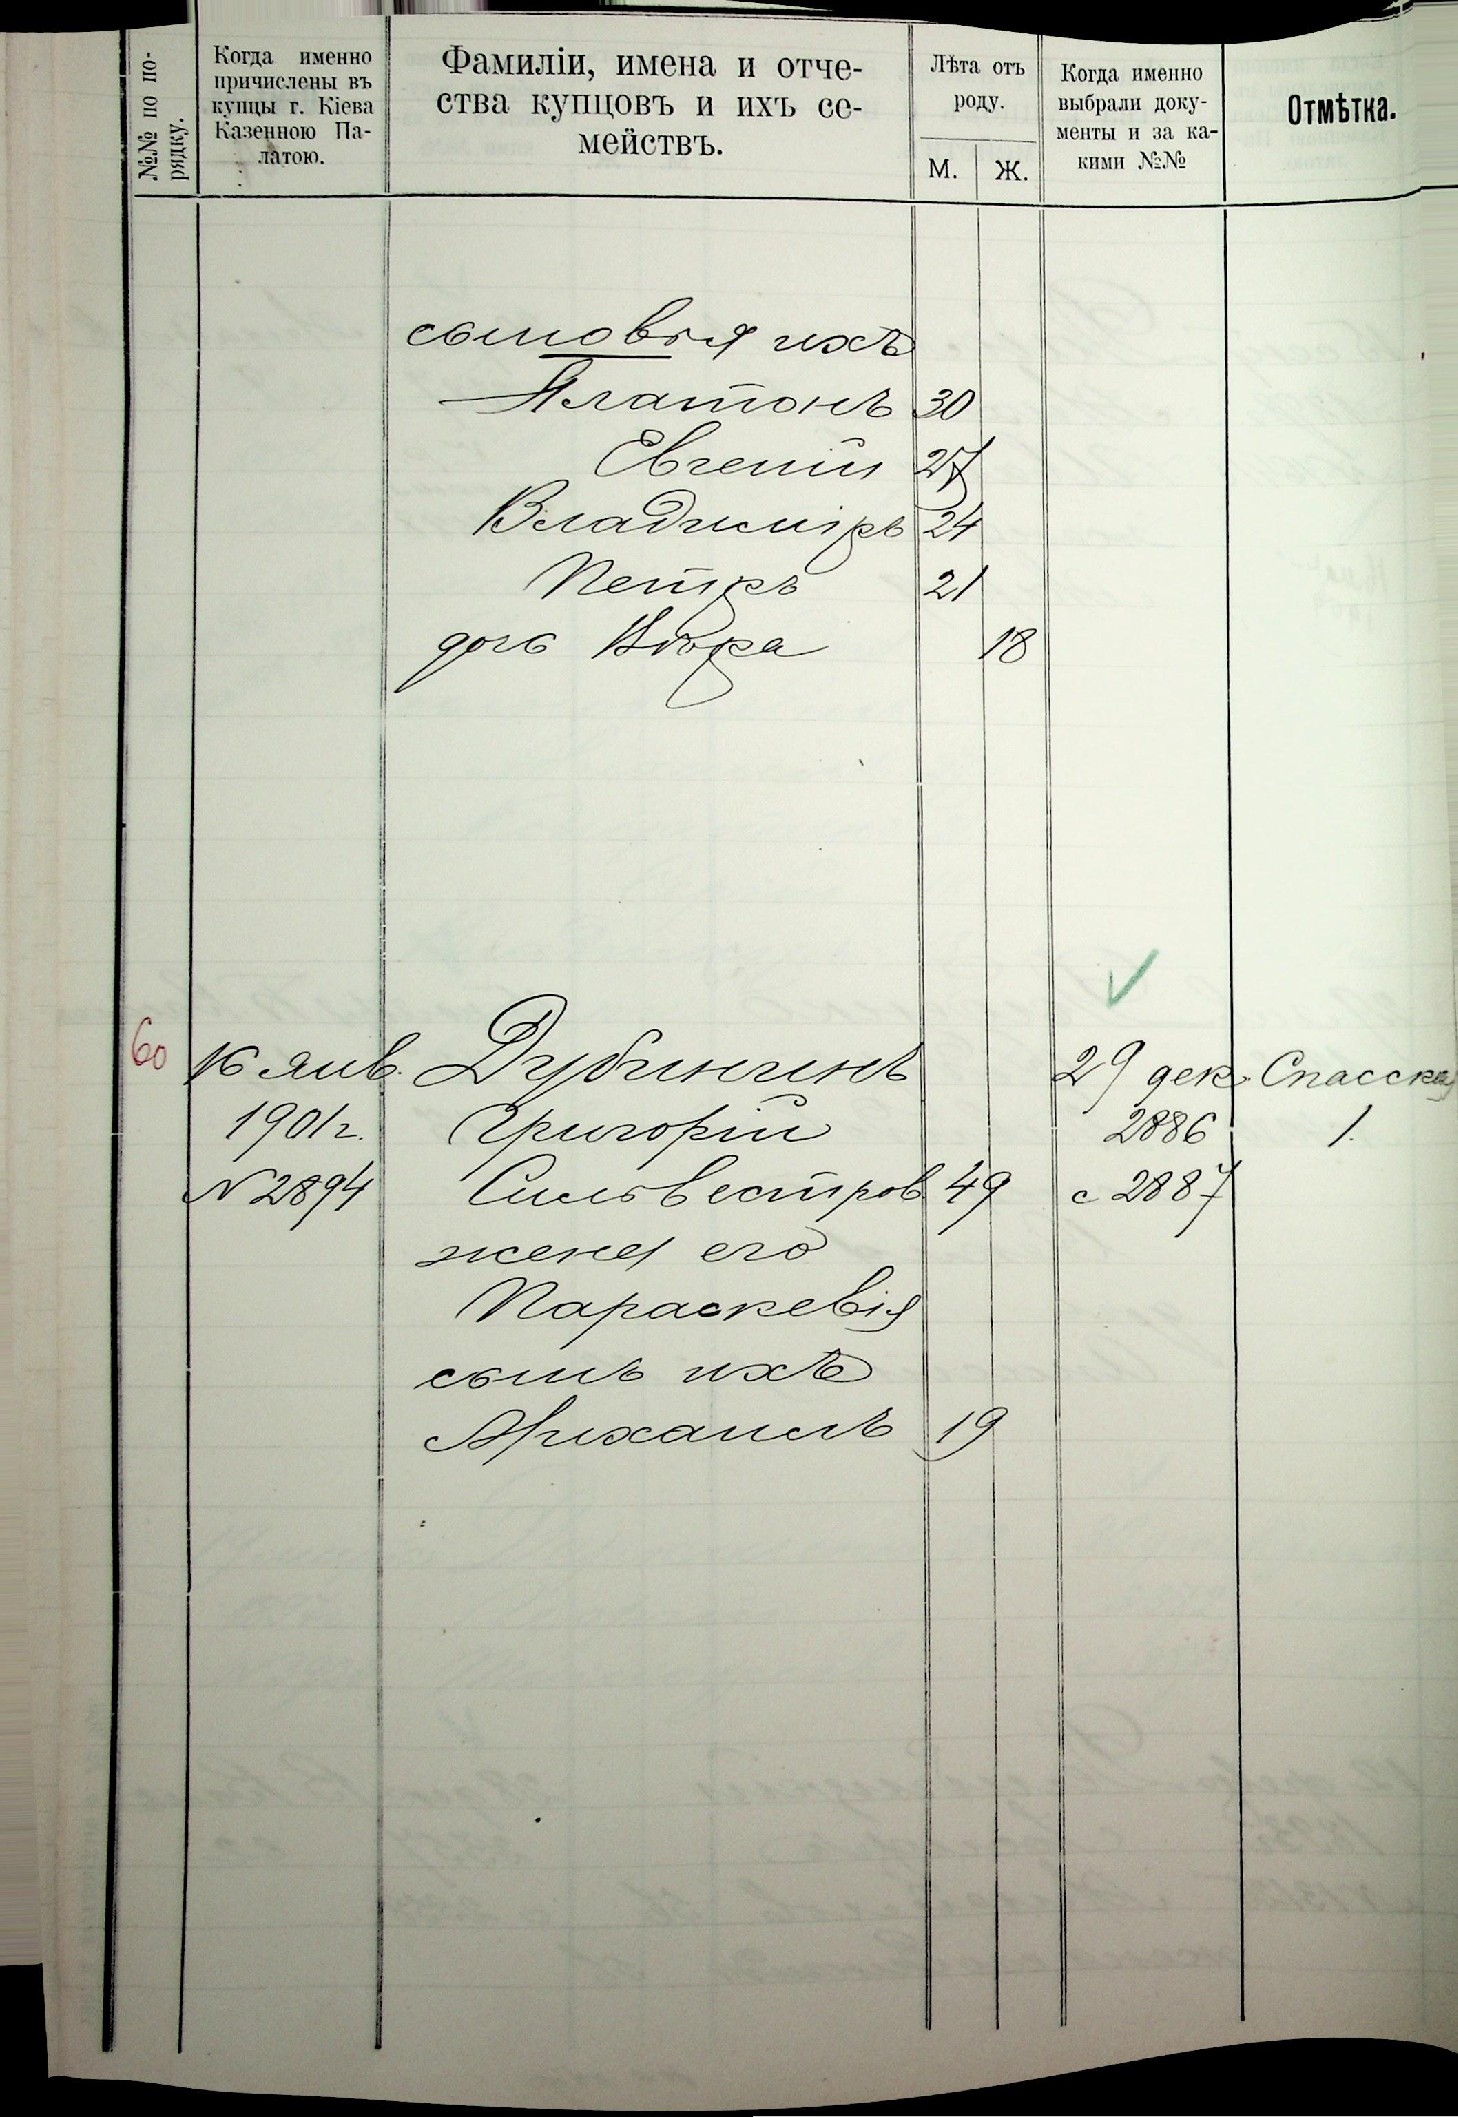 №№ по по-
рядку.
Когда именно
причислены въ
купцы г. Кіева
Казенною Па-
латою.
Фамиліи, имена и отче-
ства купцовъ и ихъ се-
мействъ.
Лѣта отъ
роду.
М. Ж.
Когда именно
выбрали доку-
менты и за ка-
кими №№
Отмѣтка.
сыновья ихъ
Платонъ 30
Евгеній 27
Владиміръ 24
Петръ 21
дочь Вѣра 18
60 16 янв. Дубининъ 29 дек. Спасская
1901 г. Григорій 2886 1.
N 2894 Сильвестров. 49 с 2887
жена его
Параскевія
сынъ ихъ
Михаилъ 19